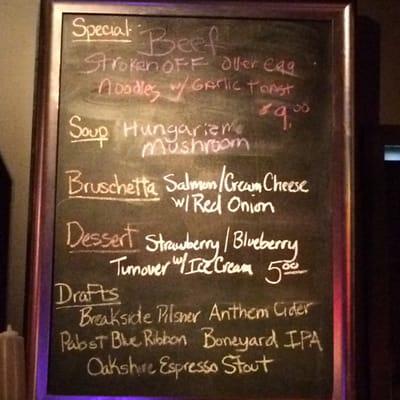 Special:
Beef
StrokenOFF over egg
Noodles w/ Garlic Toast
$9.00
Soup Hungarian
Mushroom
Bruschetta Salmon/Cream Cheese
w/ Red Onion
Dessert Strawberry/Blueberry
Turnover w/ Ice Cream 5.00
Drafts
Breakside Pilsner Anthem Cider
Pabst Blue Ribbon Boneyard IPA
Oakshire Espresso Stout